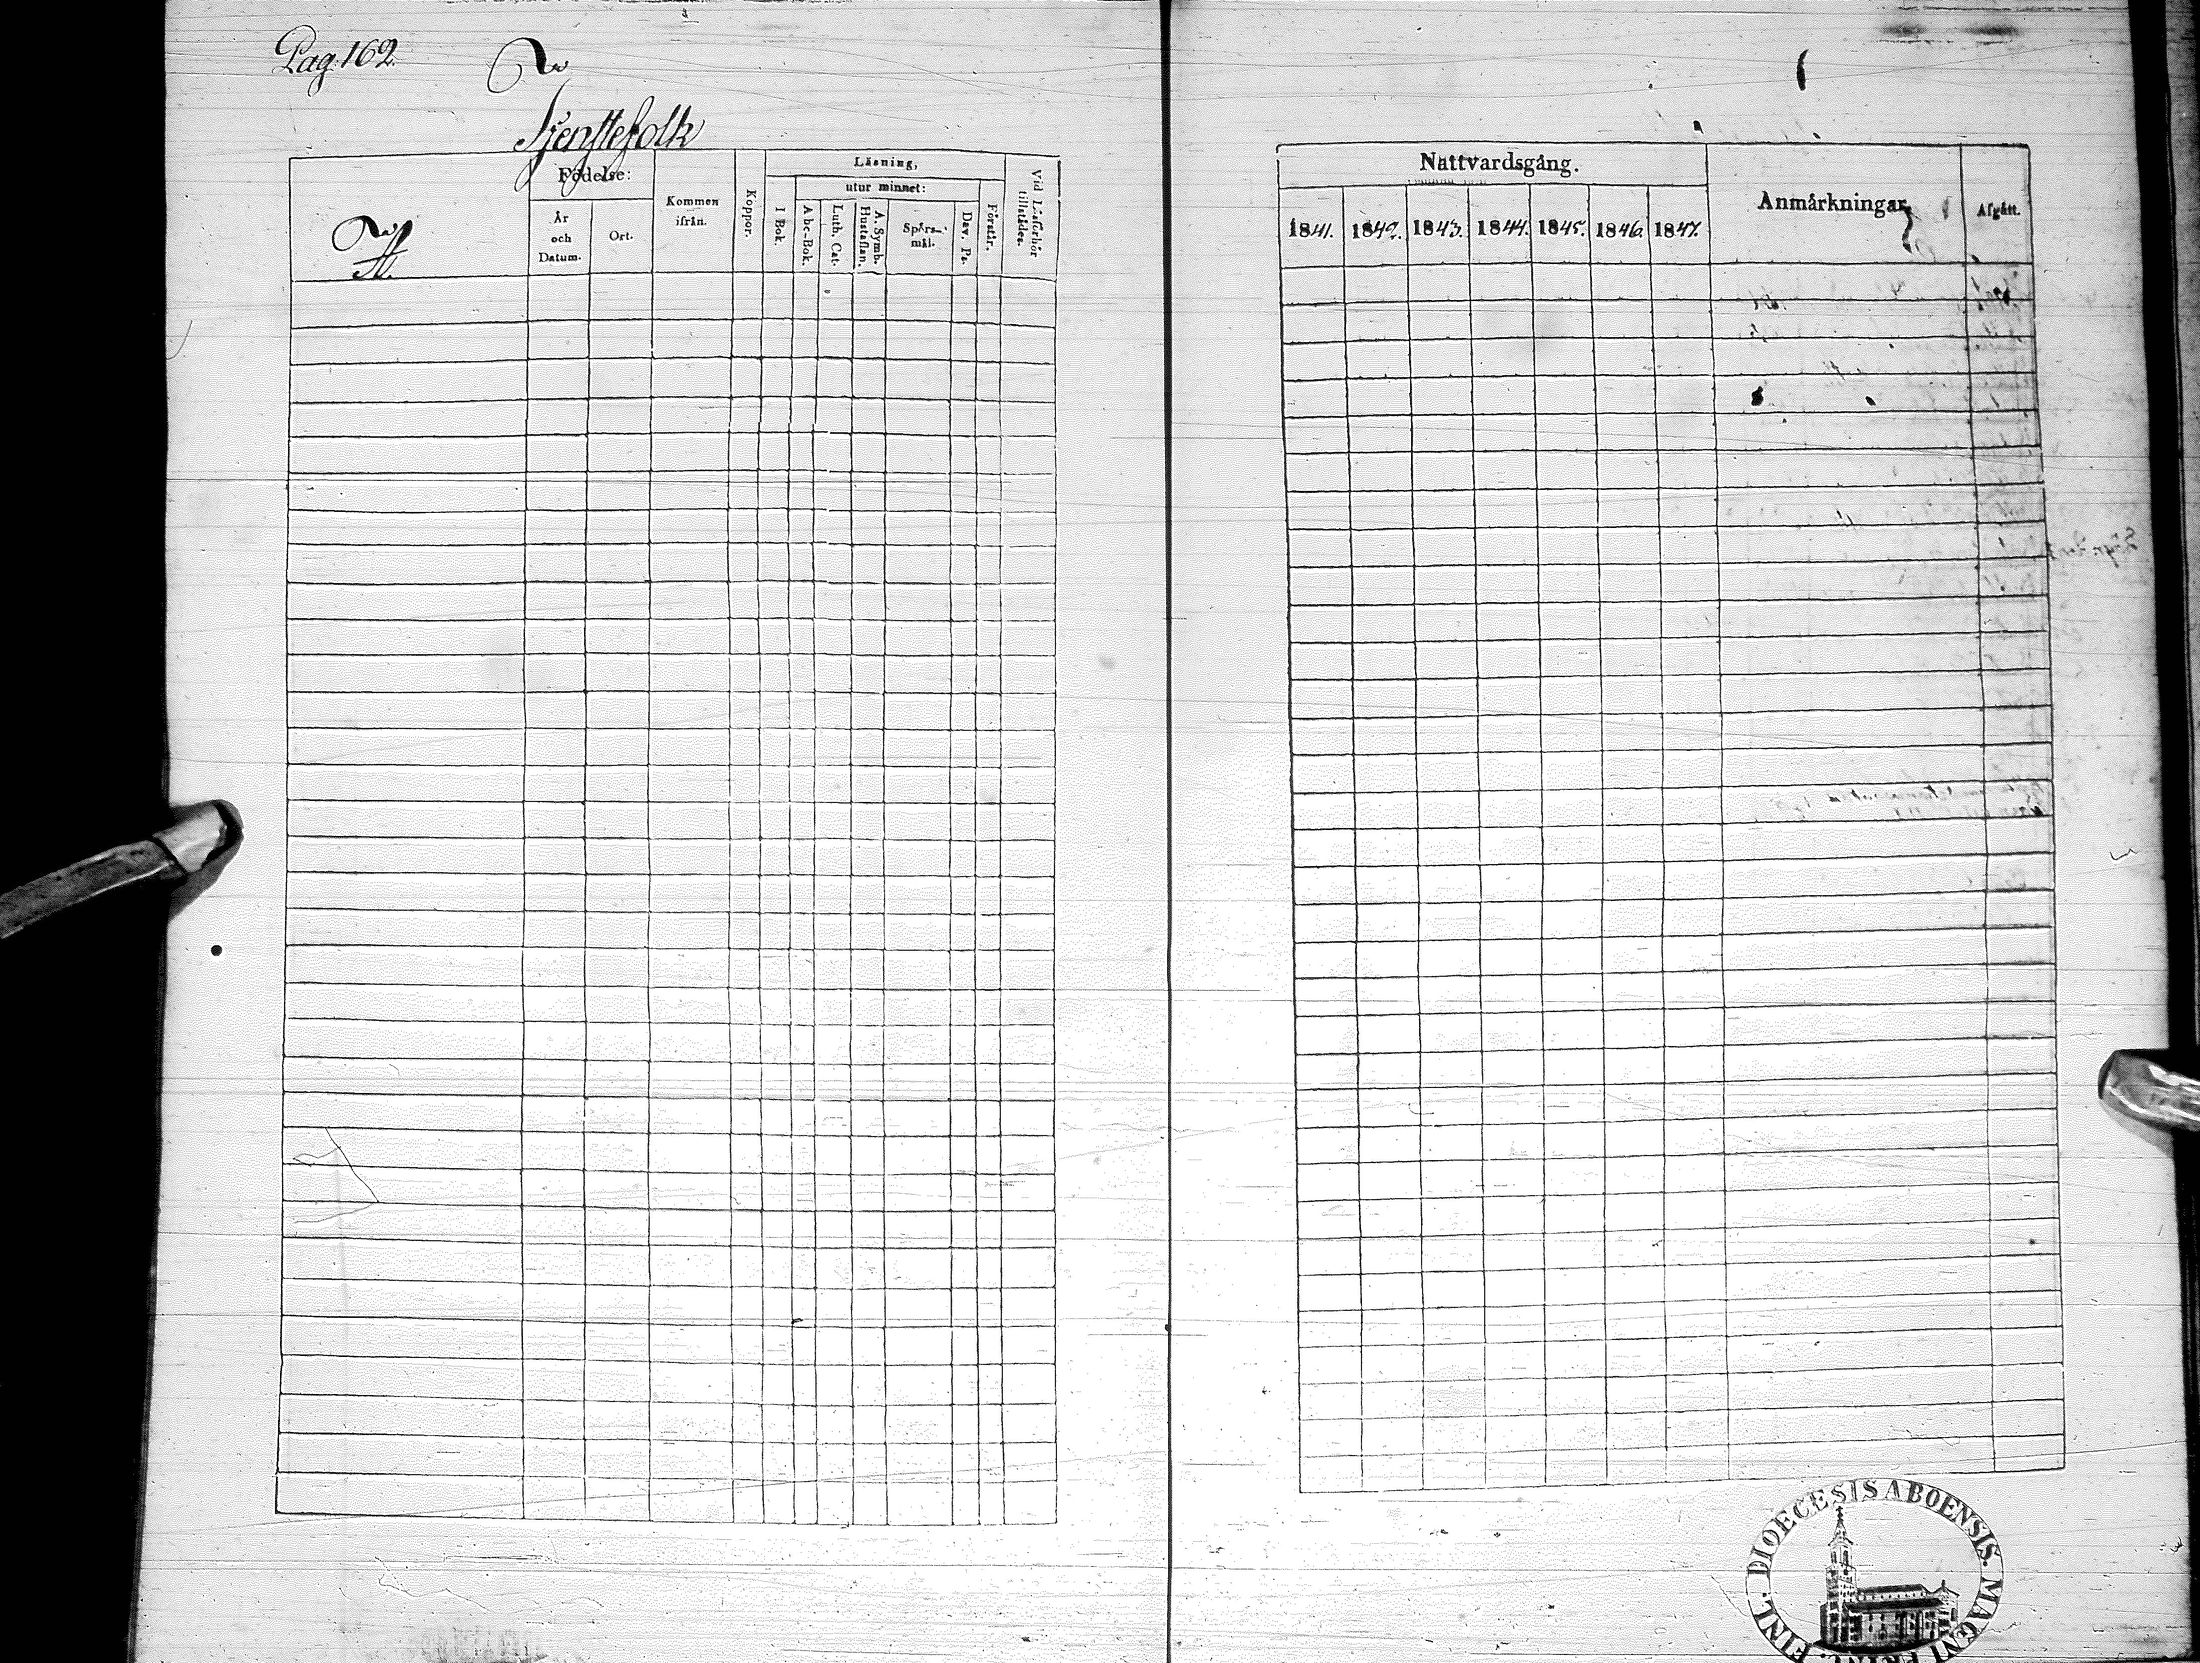 Pag. 162.
Tjenstefolk
Födelse:
År
och
Datum.
Ort.
Kommen
ifrån.
Koppor.
Läsning,
utur minnet:
I Bok.
Abc-Bok.
Luth. Cat.
A. Symb.
Hustaflan.
Spörs-
mål.
Dav. Ps.
Förstår.
Vid Läsförhör
tillstädes.
Nattvardsgång.
1841. 1842. 1843. 1844. 1845. 1846. 1847.
Anmärkningar
Afgått.
DIOECESIS ABOENSIS. MAGNI PRINC. FINL.